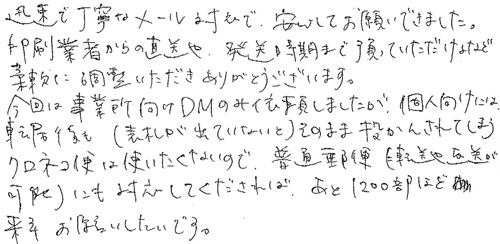 迅速で丁寧なメール対応で、安心してお願いできました。
印刷業者からの直送や、発送時期まで預っていただけるなど
柔軟に調整いただきありがとうございます。
今回は事業所向けDMのみ依頼しましたが、個人向けには
転居後も(表札が出ていないと)そのまま投かんされてしまう
クロネコ便は使いたくないので、普通郵便(転送や返送が
可能)にも対応してくだされば、あと1200部ほど
来年お願いしたいです。